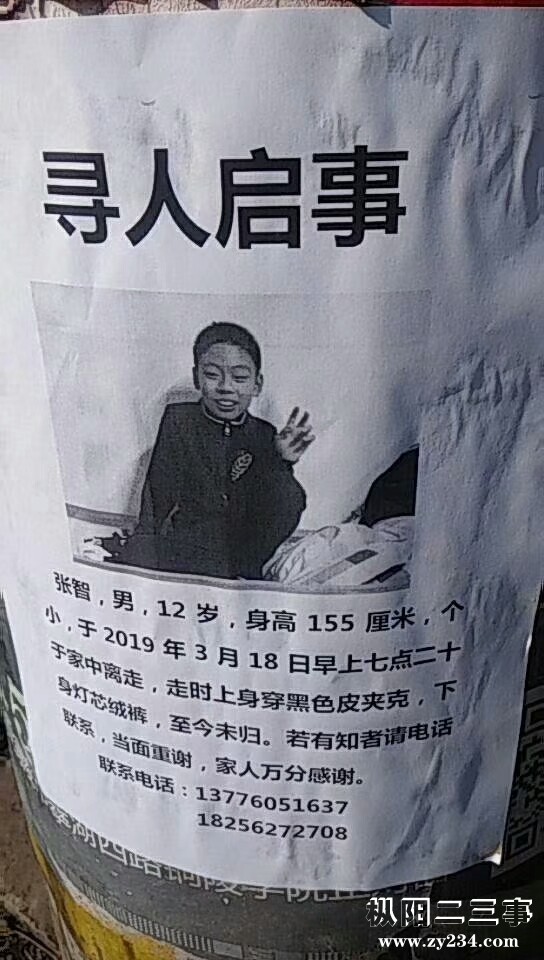 寻人启事
张智，男，12 岁，身高 155 厘米，个
小，于 2019 年 3 月 18 日早上七点二十
于家中离走，走时上身穿黑色皮夹克，下
身灯芯绒裤，至今未归。若有知者请电话
联系，当面重谢，家人万分感谢。
联系电话：13776051637
18256272708
湖西路铜陵学院
枞阳二三事
www.zy234.com